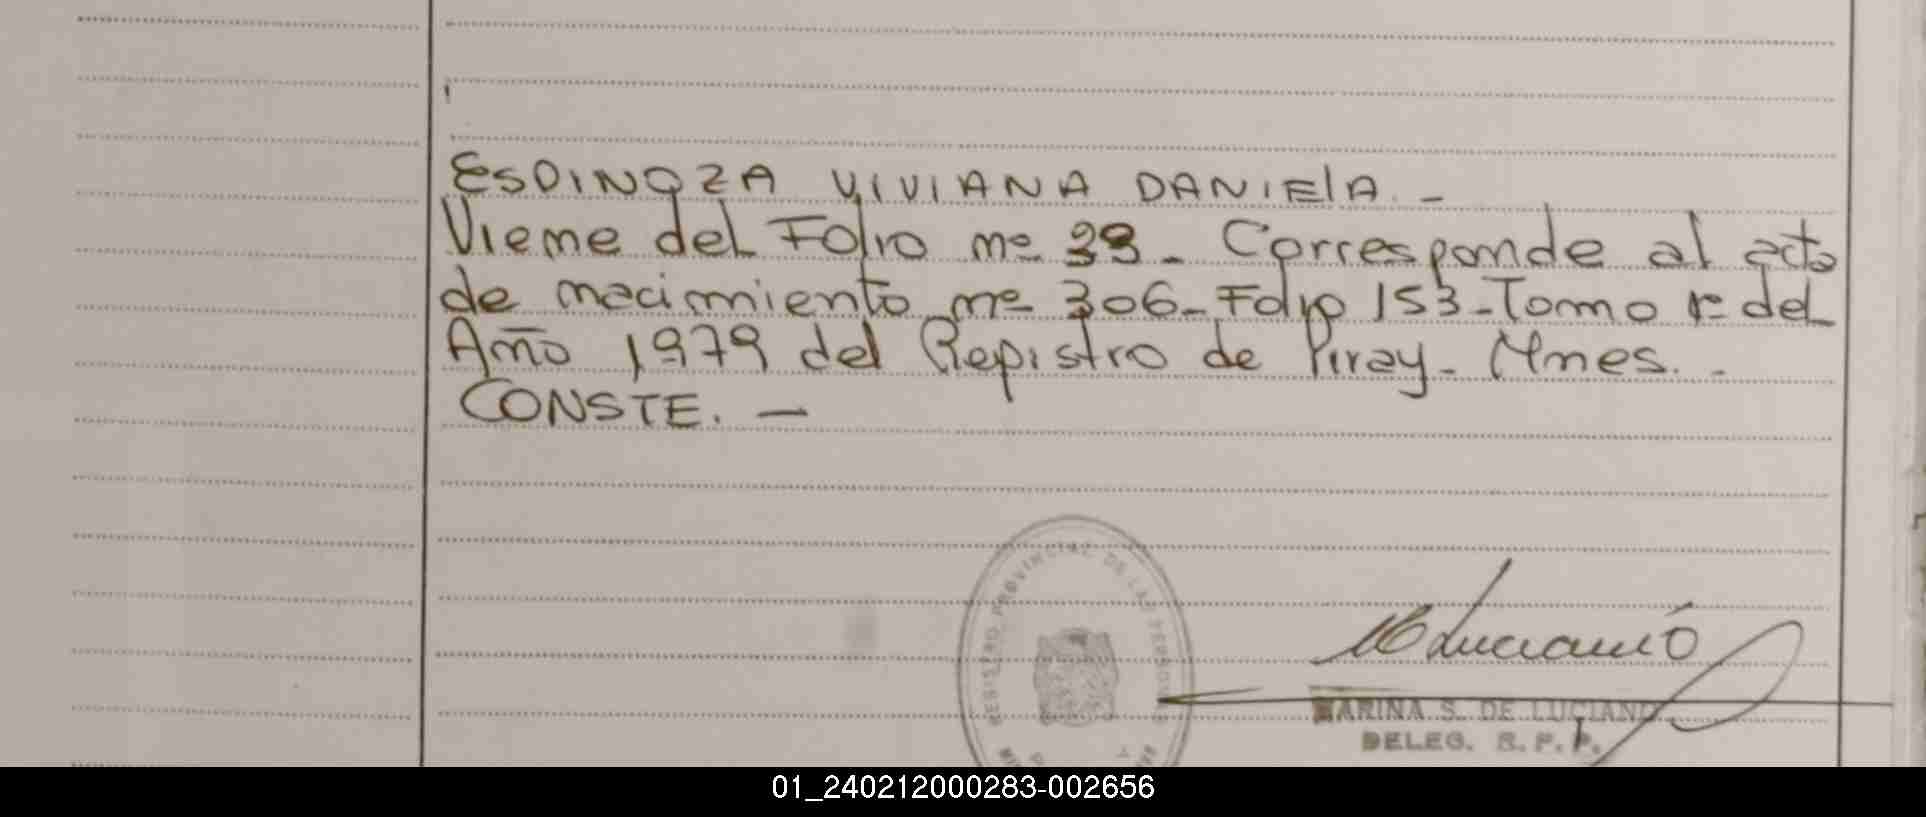 ESPINOZA VIVIANA DANIELA. -
Viene del Folio nº 39 - Corresponde al acta
de nacimiento nº 306 - Folio 153 - Tomo 1º del
Año 1979 del Registro de Piray - Mnes. -
CONSTE. -
REGISTRO PROVINCIAL DE LAS PERSONAS
M Luciano
MARINA S. DE LUCIANO
DELEG. R. P. P.
01_240212000283-002656